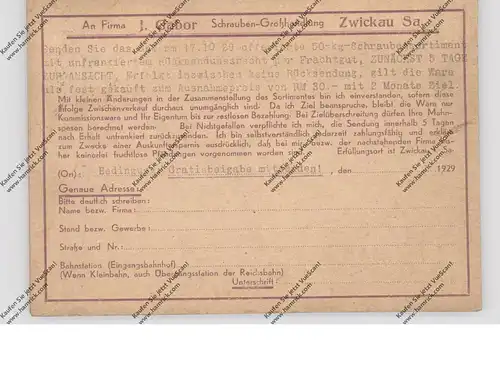 An Firma J. Gabor Schrauben-Großhandlung Zwickau Sa.
Senden Sie das am 17.10 29 offerierte 50-kg-Schraubensortiment
mit unfrankiertem Rücksendungsfrachtbr. p. Frachtgut, ZUNÄCHST 5 TAGE
ZUR ANSICHT. Erfolgt inzwischen keine Rücksendung, gilt die Ware
als fest gekauft zum Ausnahmepreis von RM 30.- mit 2 Monate Ziel.
Mit kleinen Änderungen in der Zusammenstellung des Sortimentes bin ich einverstanden, sofern diese
Erfolge Zwischenverkauf durchaus unumgänglich sind. Da ich Ziel beanspruche, bleibt die Ware nur
Kommissionsware und Ihr Eigentum bis zur restlosen Bezahlung. Bei Zielüberschreitung dürfen Ihre
sonsen berechnet werden. Bei Nichtgefallen verpflichte ich mich, die Sendung innerhalb 5 Tagen
nach Erhalt unfrankiert zurückzusenden. Ich bin selbstverständlich jederzeit zahlungsfähig und erkläre
zum Zwecke einer Auskunftersparnis ausdrücklich, daß bei mir bezw. der nachstehenden Firma
her keinerlei fruchtlose Pfändungen vorgenommen worden sind. Erfüllungsort ist Zwickau, Sa.
(On): Bedingung: Gratisbeigabe mitsenden! , den 1929
Genaue Adresse:
Bitte deutlich schreiben:
Name bezw. Firma:
Stand bezw. Gewerbe:
Straße und Nr.
Bahnstation (Eingangsbahnhof)
(Wenn Kleinbahn, auch Übergangsstation der Reichsbahn)
Unterschrift:
Kaufen Sie jetzt VueScan!
www.hamrick.com